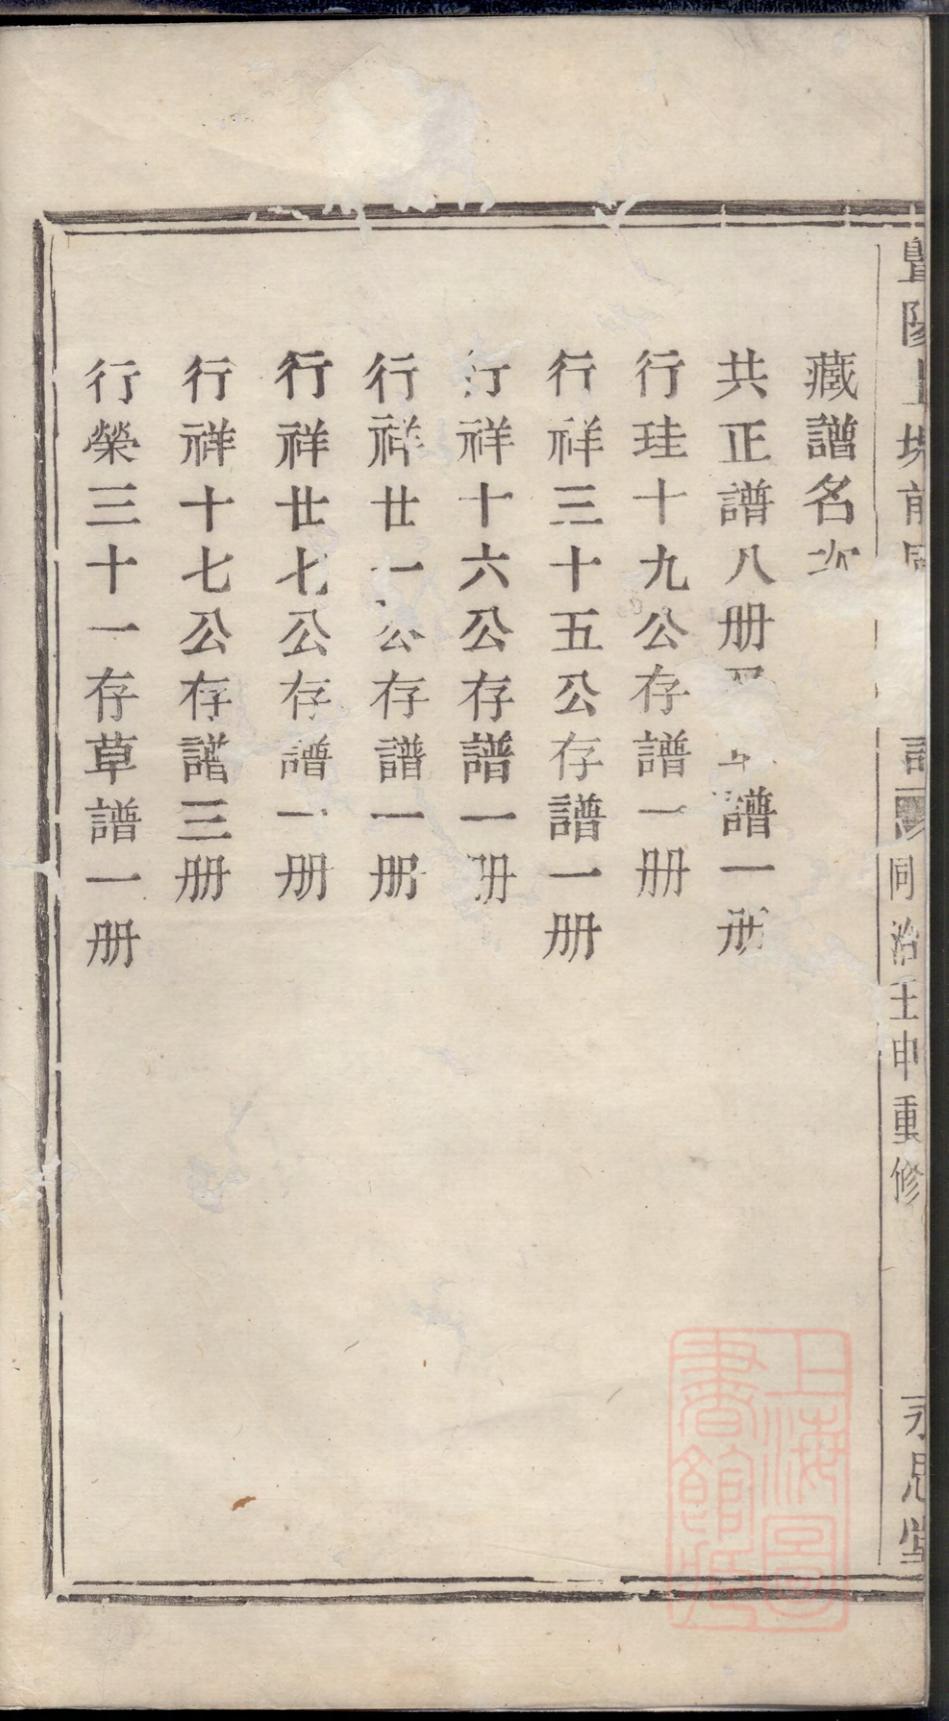 暨陽上塊前
同治壬申重修
永思堂
藏譜名次
共正譜八册 譜一册
行珪十九公存譜一册
行祥三十五公存譜一册
行祥十六公存譜一册
行祥廿一公存譜一册
行祥廿七公存譜一册
行祥十七公存譜三册
行榮三十一存草譜一册
上海圖書館藏